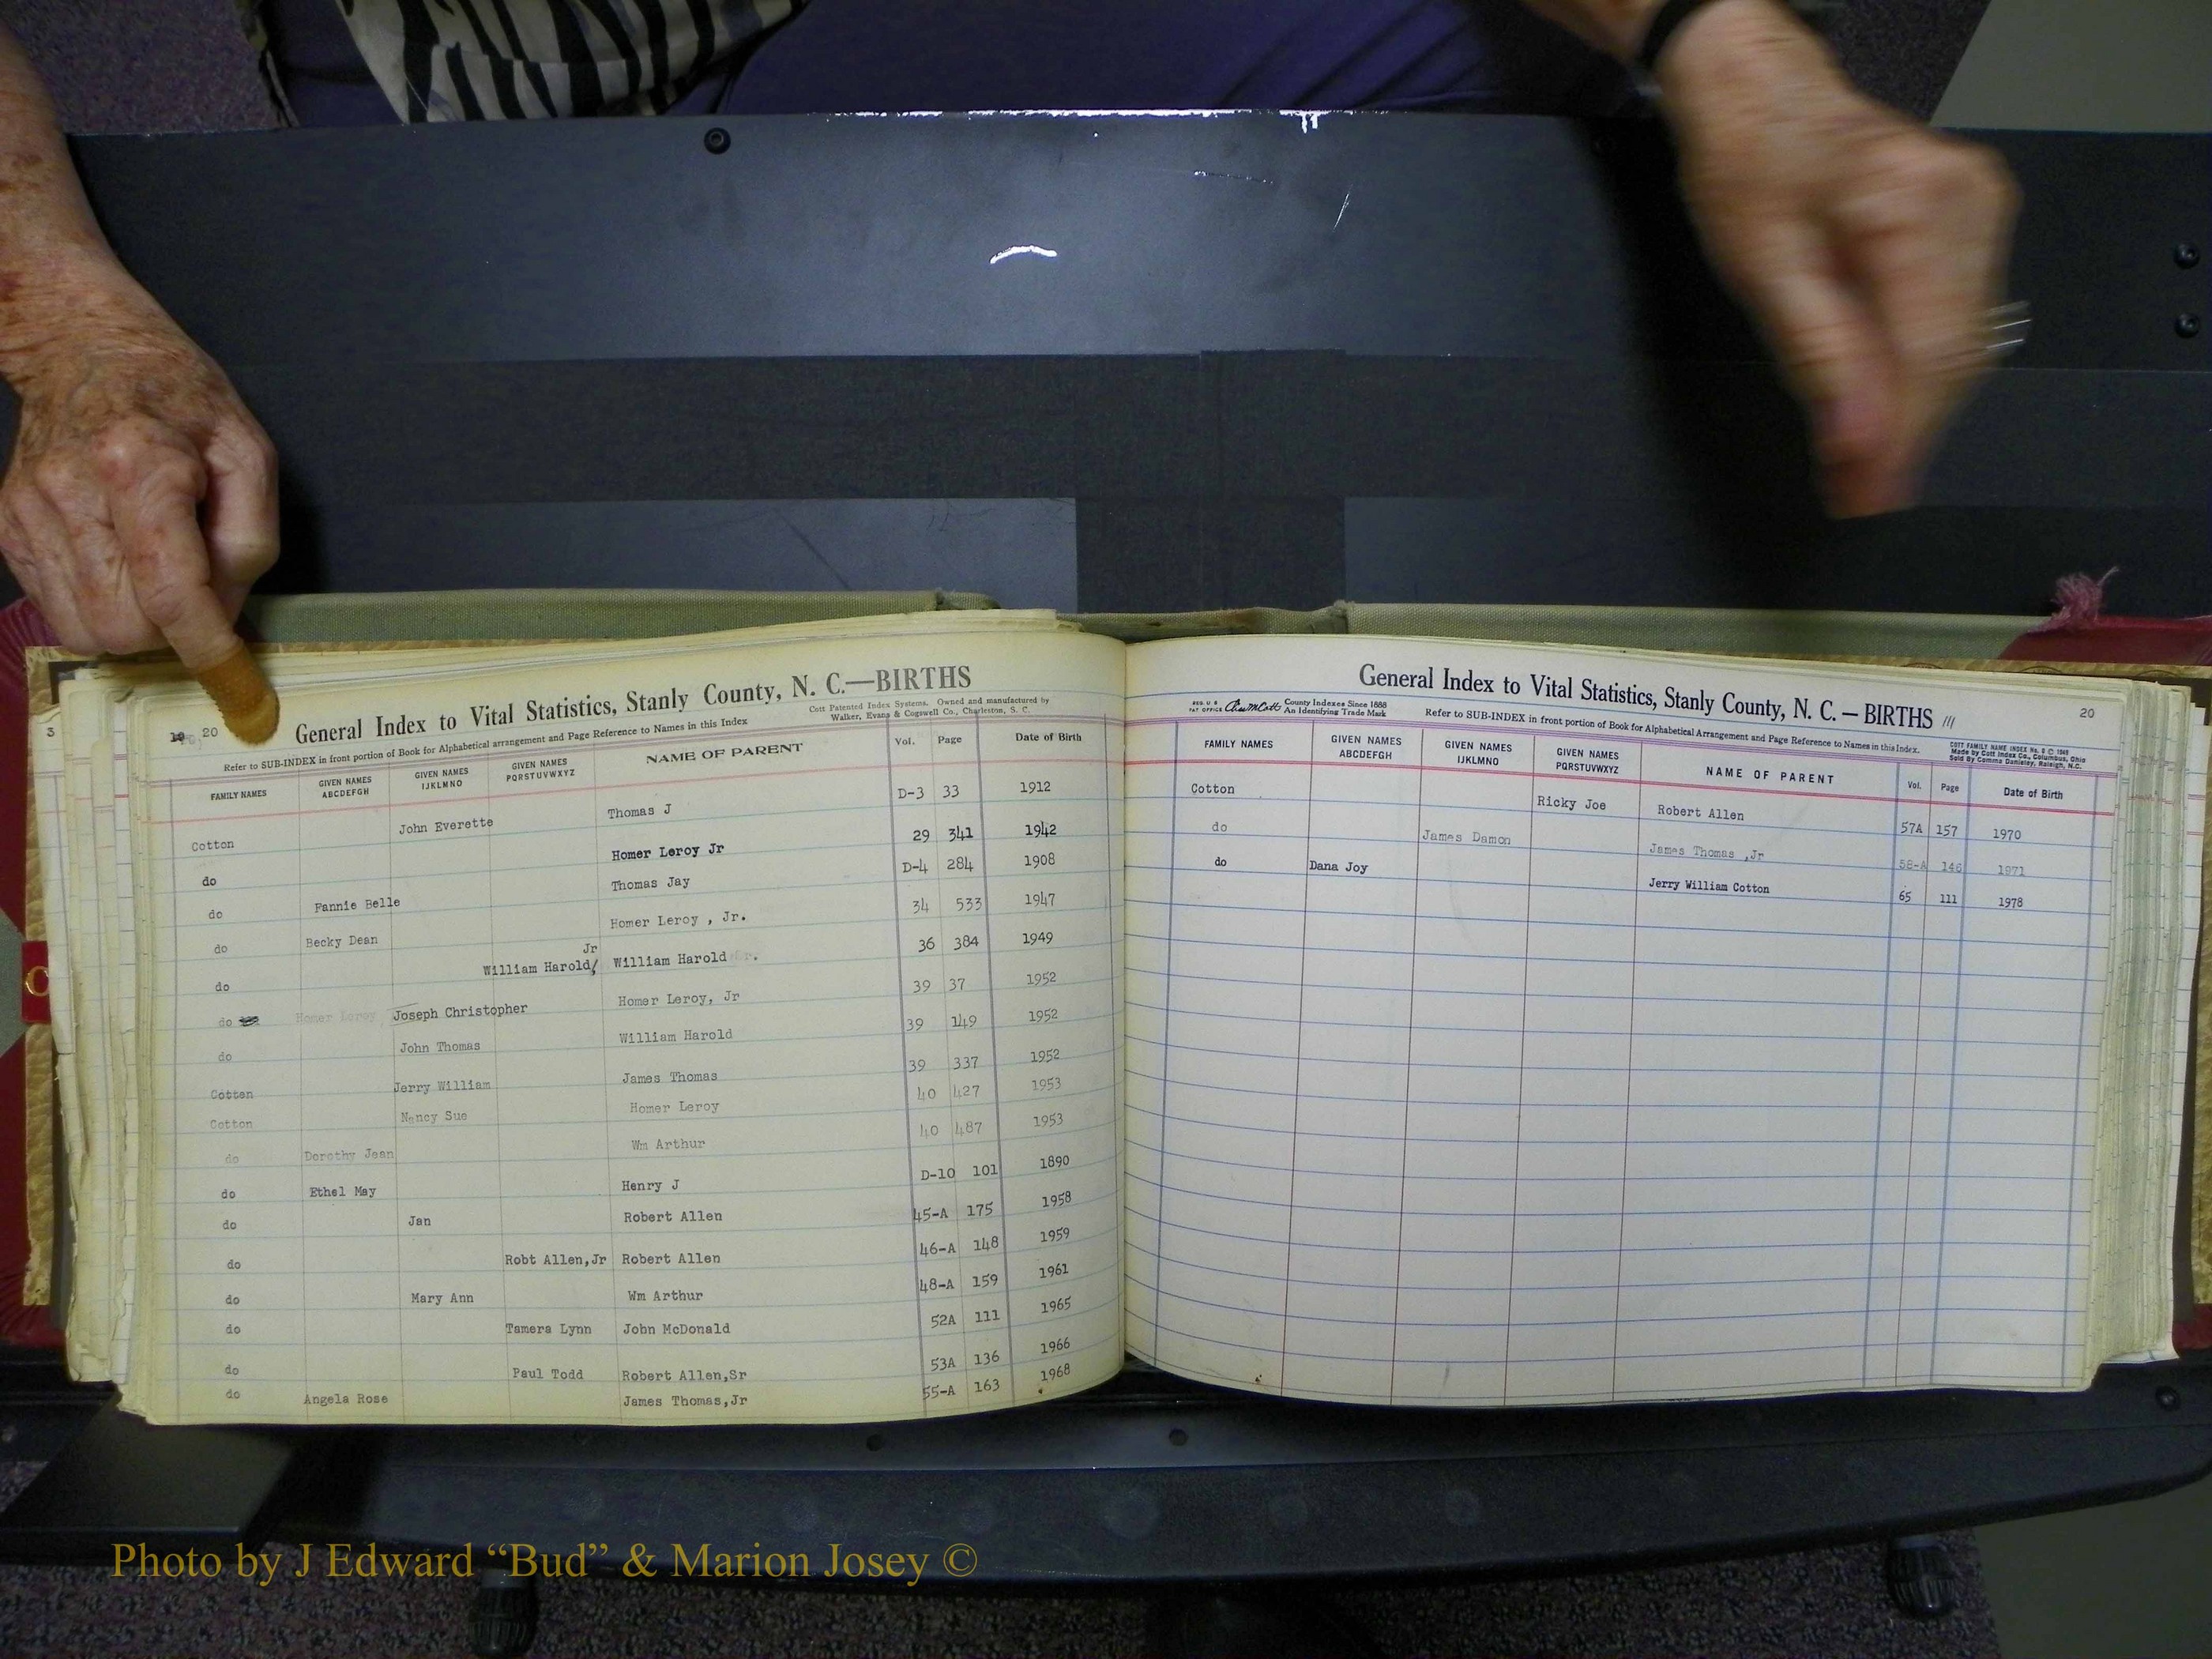 3
19 20
General Index to Vital Statistics, Stanly County, N. C.—BIRTHS
Refer to SUB-INDEX in front portion of Book for Alphabetical arrangement and Page Reference to Names in this Index
Cott Patented Index Systems. Owned and manufactured by
Walker, Evans & Cogswell Co., Charleston, S. C.
FAMILY NAMES GIVEN NAMES ABCDEFGH GIVEN NAMES IJKLMNO GIVEN NAMES PQRSTUVWXYZ NAME OF PARENT Vol. Page Date of Birth
Cotton John Everette Thomas J D-3 33 1912
do Homer Leroy Jr 29 341 1942
do Fannie Belle Thomas Jay D-4 284 1908
do Becky Dean Homer Leroy , Jr. 34 533 1947
Jr
do William Harold/ William Harold 36 384 1949
do Homer Leroy Joseph Christopher Homer Leroy, Jr 39 37 1952
do John Thomas William Harold 39 149 1952
Cotton Jerry William James Thomas 39 337 1952
Cotton Nancy Sue Homer Leroy 40 427 1953
do Dorothy Jean Wm Arthur 40 487 1953
do Ethel May Henry J D-10 101 1890
do Jan Robert Allen 45-A 175 1958
do Robt Allen,Jr Robert Allen 46-A 148 1959
do Mary Ann Wm Arthur 48-A 159 1961
do Tamera Lynn John McDonald 52A 111 1965
do Paul Todd Robert Allen,Sr 53A 136 1966
do Angela Rose James Thomas,Jr 55-A 163 1968
General Index to Vital Statistics, Stanly County, N. C. — BIRTHS
20
REG. U. S.
PAT OFFICE
County Indexes Since 1888
An Identifying Trade Mark
Refer to SUB-INDEX in front portion of Book for Alphabetical Arrangement and Page Reference to Names in this Index.
COTT FAMILY NAME INDEX No. 8 © 1948
Made by Cott Index Co., Columbus, Ohio
Sold By Comma Danieley, Raleigh, N.C.
FAMILY NAMES GIVEN NAMES ABCDEFGH GIVEN NAMES IJKLMNO GIVEN NAMES PQRSTUVWXYZ NAME OF PARENT Vol. Page Date of Birth
Cotton Ricky Joe Robert Allen 57A 157 1970
do James Damon James Thomas ,Jr 58-A 146 1971
do Dana Joy Jerry William Cotton 65 111 1978
Photo by J Edward “Bud” & Marion Josey ©